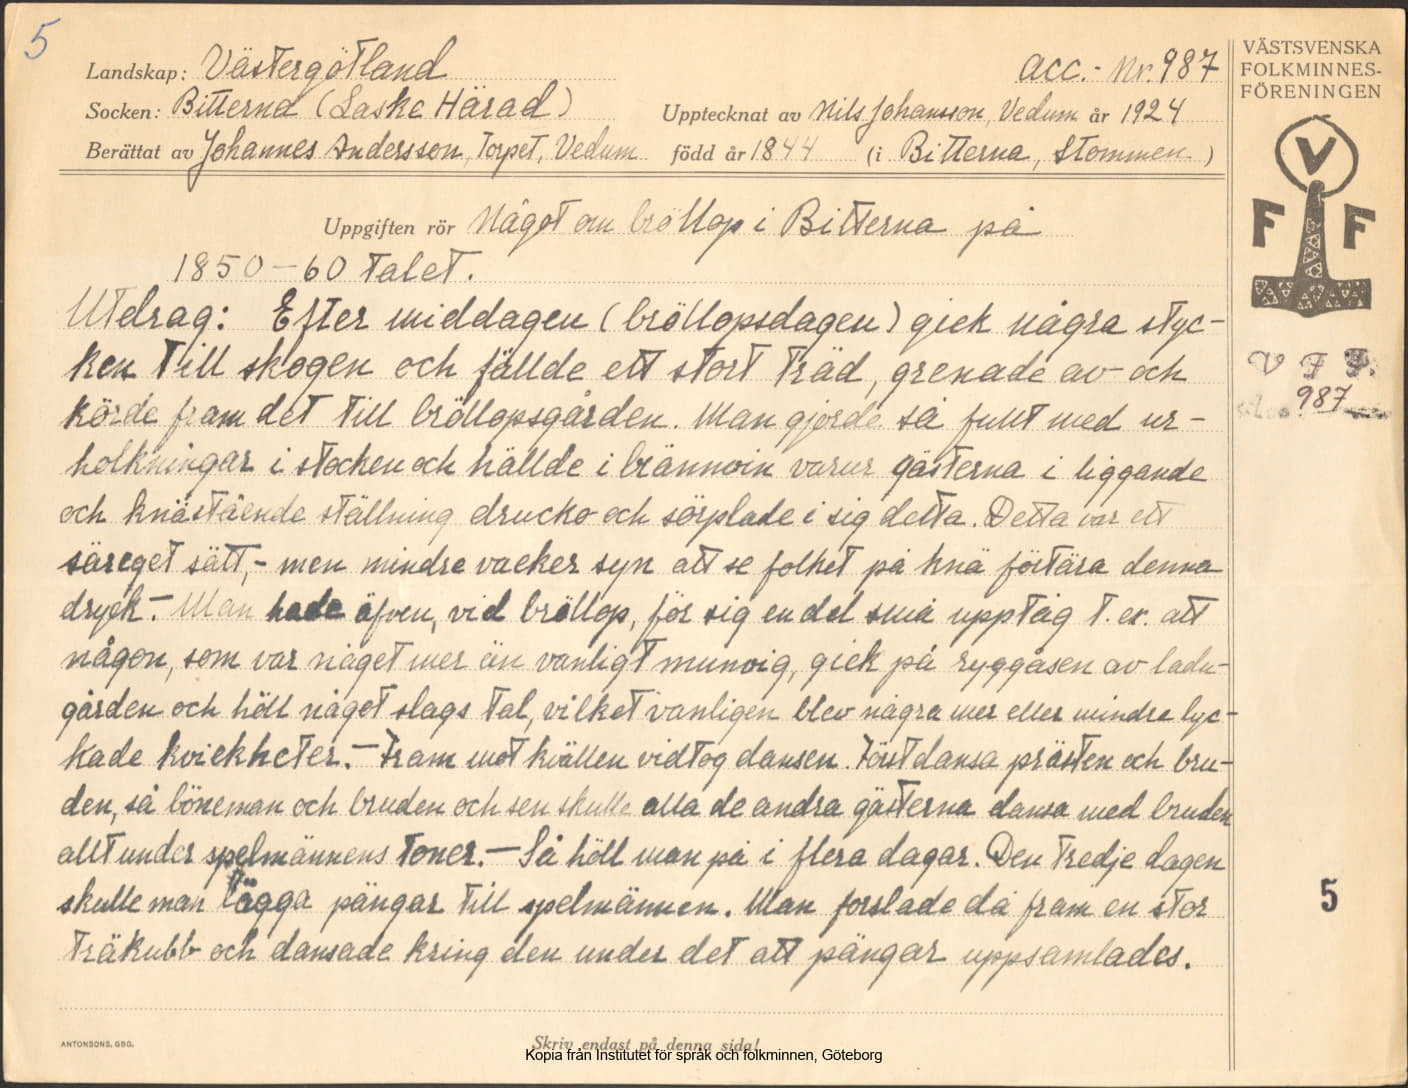 5
Landskap: Västergötland
acc.- Nr. 987
Socken: Bitterna (Laske Härad)
Upptecknat av Nils Johansson, Vedum år 1924
Berättat av Johannes Andersson, Torpet, Vedum född år 1844 (i Bitterna, Stommen)
VÄSTSVENSKA
FOLKMINNES-
FÖRENINGEN
V
F F
Uppgiften rör Något om bröllop i Bitterna på
1850-60 talet.
Utdrag: Efter middagen (bröllopsdagen) giek några styc-
ken till skogen och fällde ett stort träd, grenade av och
körde fram det till bröllopsgården. Man gjorde så fullt med ur-
holkningar i stocken och hällde i brännvin varur gästerna i liggande
och knästående ställning drucko och sörplade i sig detta. Detta var ett
säreget sätt,- men mindre vacker syn att se folket på knä förtära denna
dryck.- Man hade äfven, vid bröllop, för sig en del små upptåg t. ex. att
någon, som var något mer än vanligt munvig, giek på ryggåsen av ladu-
gården och höll något slags tal, vilket vanligen blev några mer eller mindre lyc-
kade kviekheter.- Fram mot kvällen vidtog dansen. Först dansa prästen och bru-
den, så böneman och bruden och sen skulle alla de andra gästerna dansa med bruden
allt under spelmännens toner.- Så höll man på i flera dagar. Den tredje dagen
skulle man lägga pängar till spelmännen. Man forslade då fram en stor
träkubb och dansade kring den under det att pängar uppsamlades.
V F F.
987
5
ANTONSONS, GBG.
Skriv endast på denna sida!
Kopia från Institutet för språk och folkminnen, Göteborg